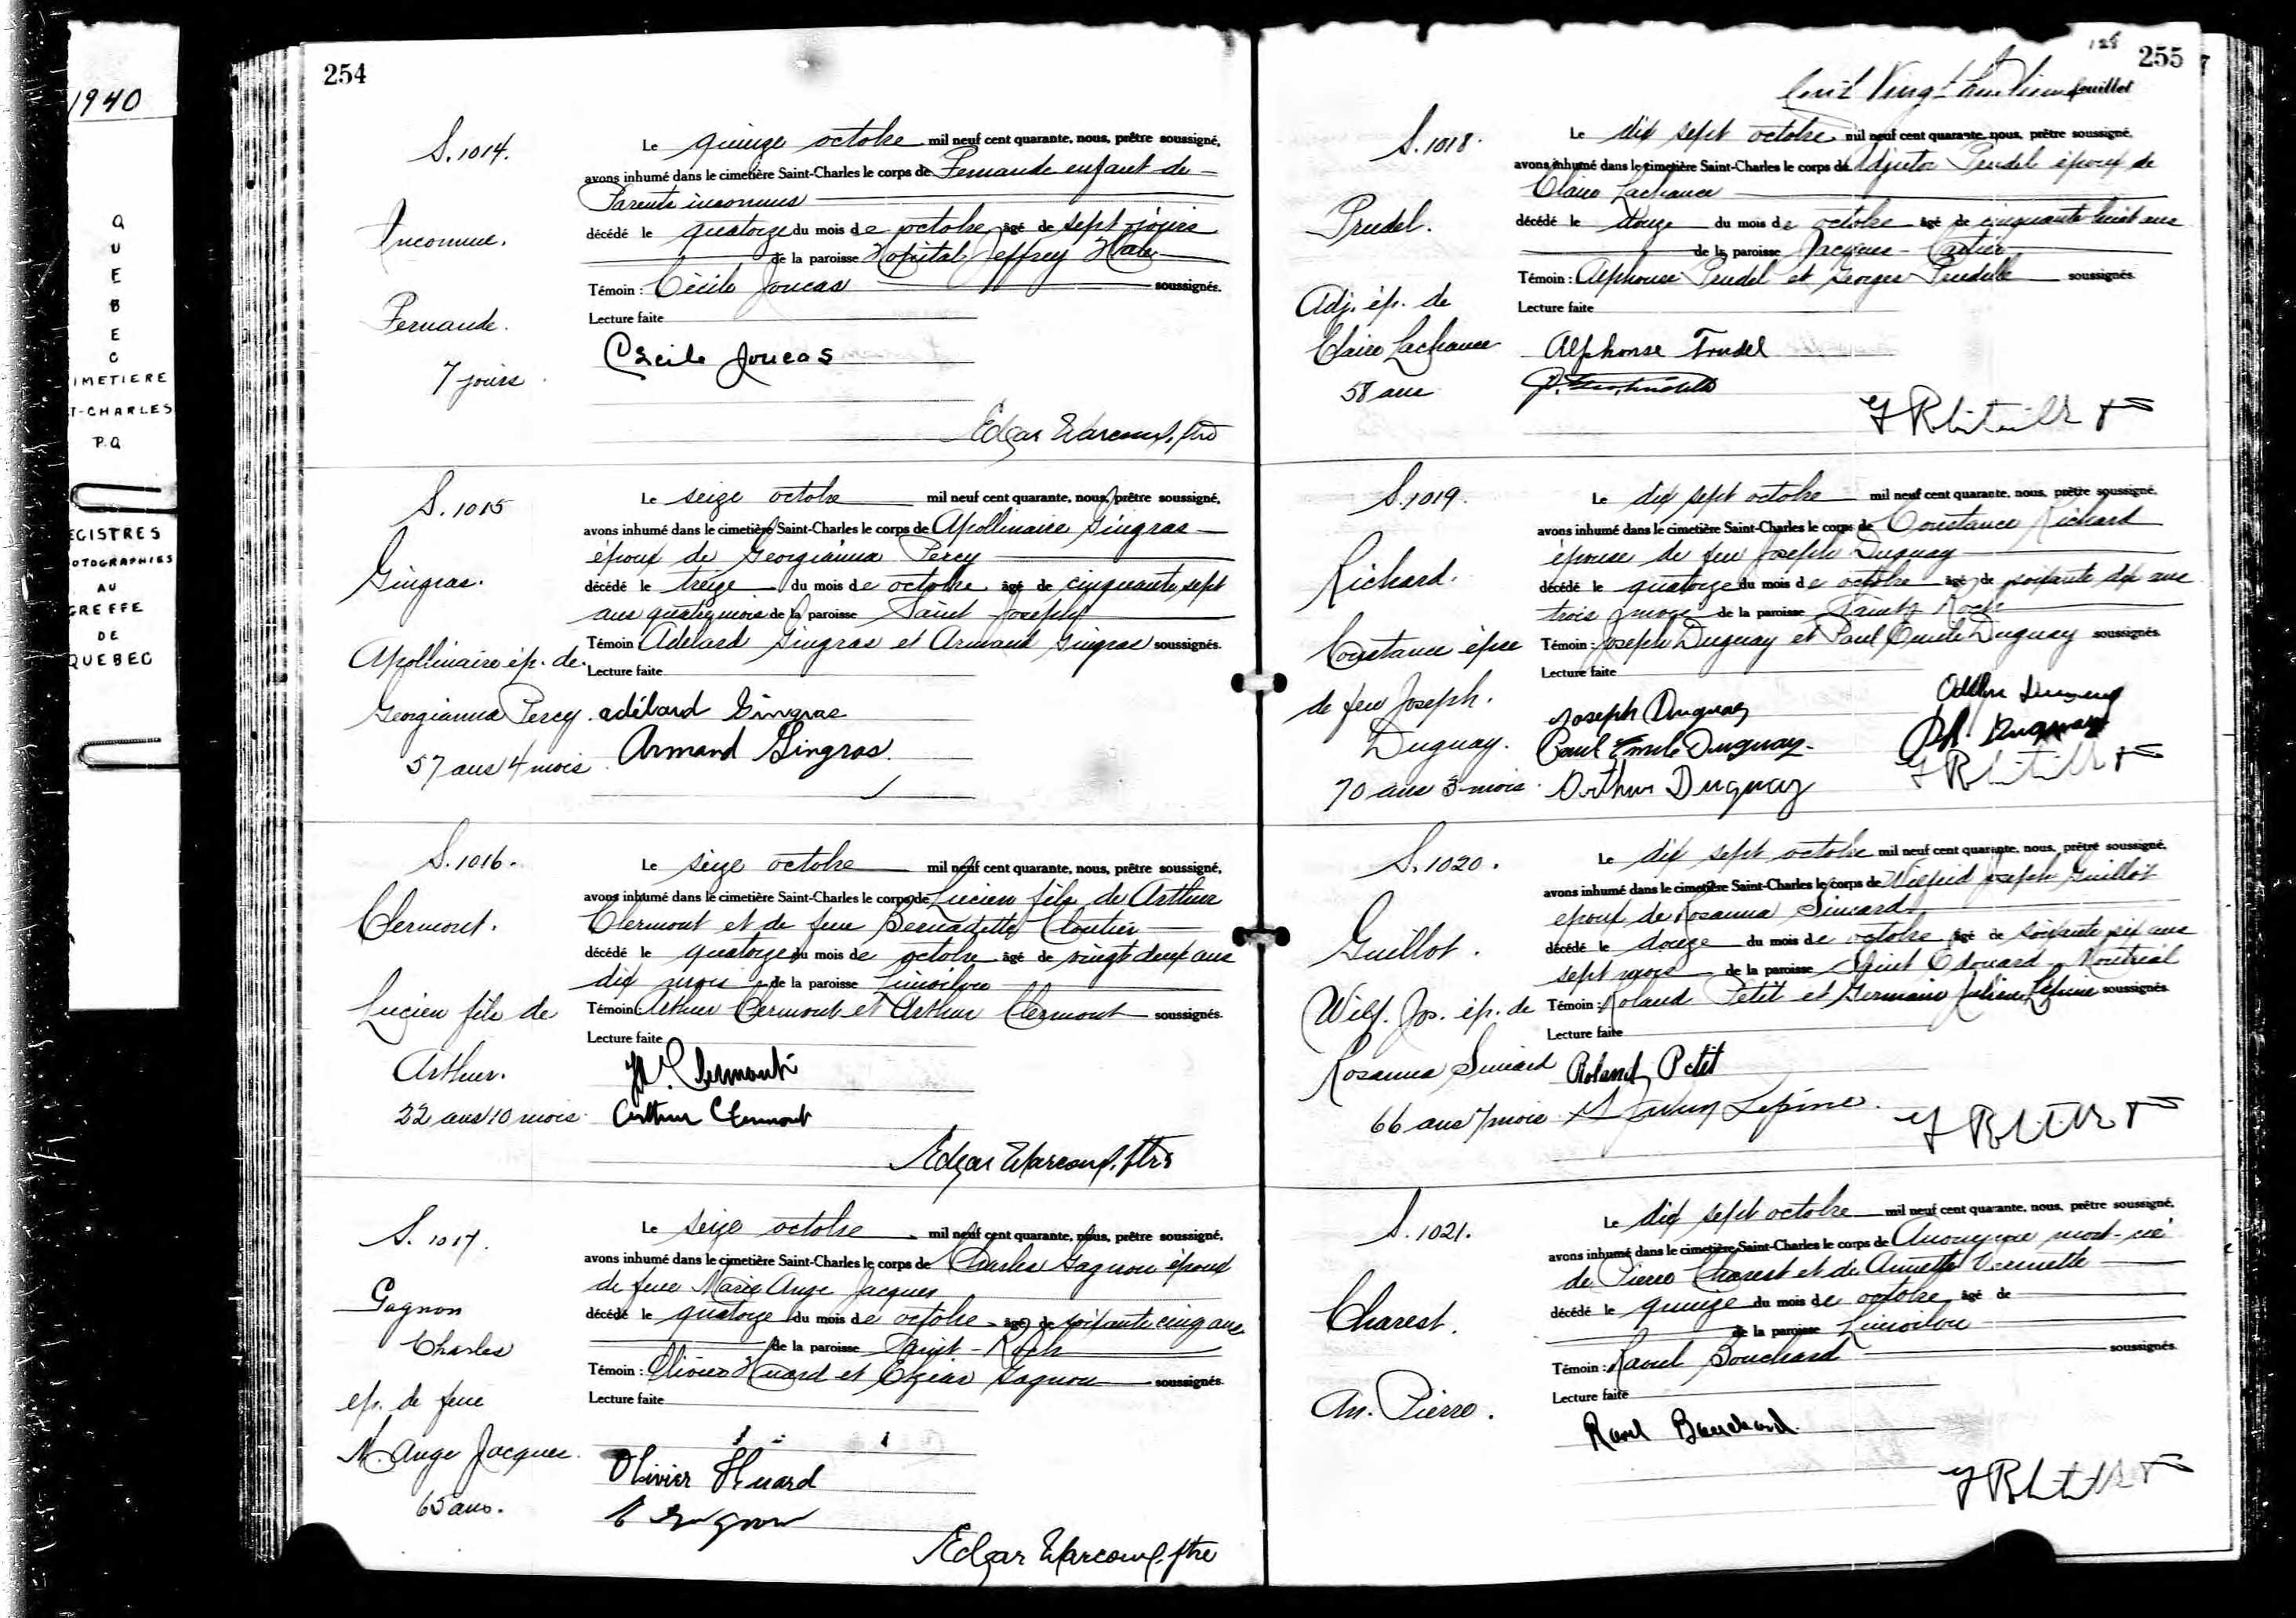 1940
QUEBEC
IMETIERE
T-CHARLES
P.Q
EGISTRES
OTOGRAPHIES
AU
GREFFE
DE
QUEBEC
254
S. 1014.
Inconnue.
Fernande.
7 jours
Le quinze octobre mil neuf cent quarante, nous, prêtre soussigné,
avons inhumé dans le cimetière Saint-Charles le corps de Fernande enfant de
Parents inconnus
décédé le quatorze du mois de octobre âgé de sept jours
de la paroisse Hopital Jeffrey Hale
Témoin : Cécile Joncas soussignés.
Lecture faite
Cécile Joncas
Edgar Harcourt, ptre
S. 1015
Gingras.
Apollinaire ép. de
Georgianna Percy.
57 ans 4 mois
Le seize octobre mil neuf cent quarante, nous, prêtre soussigné,
avons inhumé dans le cimetière Saint-Charles le corps de Apollinaire Gingras
époux de Georgianna Percy
décédé le treize du mois de octobre âgé de cinquante sept
ans quatre mois de la paroisse Saint Joseph
Témoin Adélard Gingras et Armand Gingras soussignés.
Lecture faite
adélard Gingras
Armand Gingras.
S. 1016.
Clermont.
Lucien fils de
Arthur.
22 ans 10 mois
Le seize octobre mil neuf cent quarante, nous, prêtre soussigné,
avons inhumé dans le cimetière Saint-Charles le corps de Lucien fils de Arthur
Clermont et de feue Bernadette Cloutier
décédé le quatorze du mois de octobre âgé de vingt deux ans
dix mois de la paroisse Limoilou
Témoin : Arthur Clermont et Arthur Clermont soussignés.
Lecture faite
Clermont
Arthur Clermont
Edgar Harcourt, ptre
S. 1017.
Gagnon
Charles
ep. de feue
M. Ange Jacques.
65 ans.
Le seize octobre mil neuf cent quarante, nous, prêtre soussigné,
avons inhumé dans le cimetière Saint-Charles le corps de Charles Gagnon époux
de feue Marie Ange Jacques
décédé le quatorze du mois de octobre âgé de soixante cinq ans
de la paroisse Saint-Roch
Témoin : Olivier Huard et Elzéar Gagnon soussignés.
Lecture faite
Olivier Huard
E Gagnon
Edgar Harcourt, ptre
128
255
Cent Vingt huitième feuillet
S. 1018.
Prudel.
Adj. ép. de
Claire Lachance
58 ans
Le dix sept octobre mil neuf cent quarante, nous, prêtre soussigné,
avons inhumé dans le cimetière Saint-Charles le corps de Adjutor Prudel époux de
Claire Lachance
décédé le douze du mois de octobre âgé de cinquante huit ans
de la paroisse Jacques-Cartier
Témoin : Alphonse Prudel et Georges soussignés.
Lecture faite
Alphonse
S. 1019.
Richard.
Constance épse
de feu Joseph.
Duguay.
70 ans 3 mois
Le dix sept octobre mil neuf cent quarante, nous, prêtre soussigné,
avons inhumé dans le cimetière Saint-Charles le corps de Constance Richard
épouse de feu Joseph Duguay
décédé le quatorze du mois de octobre âgé de soixante dix ans
trois mois de la paroisse Saint Roch
Témoin : Joseph Duguay et Paul Emile Duguay soussignés.
Lecture faite
Joseph Duguay
Paul Emile Duguay
Arthur Duguay
Duguay
S. 1020.
Guillot.
Wilf. Jos. ép. de
Rosanna Simard
66 ans 7 mois
Le dix sept octobre mil neuf cent quarante, nous, prêtre soussigné,
avons inhumé dans le cimetière Saint-Charles le corps de Wilfrid Joseph Guillot
epoux de Rosanna Simard
décédé le douze du mois de octobre âgé de soixante six ans
sept mois de la paroisse Saint Edouard Montréal
Témoin : Roland Petit et Germain Julien Lépine soussignés.
Lecture faite
Roland Petit
Lepine
S. 1021.
Charest.
An. Pierre.
Le dix sept octobre mil neuf cent quarante, nous, prêtre soussigné,
avons inhumé dans le cimetière Saint-Charles le corps de Anonyme mort-né
de Pierre Charest et de Annette
décédé le quinze du mois de octobre âgé de
de la paroisse Limoilou
Témoin : Raoul Bouchard soussignés.
Lecture faite
Raoul Bouchard